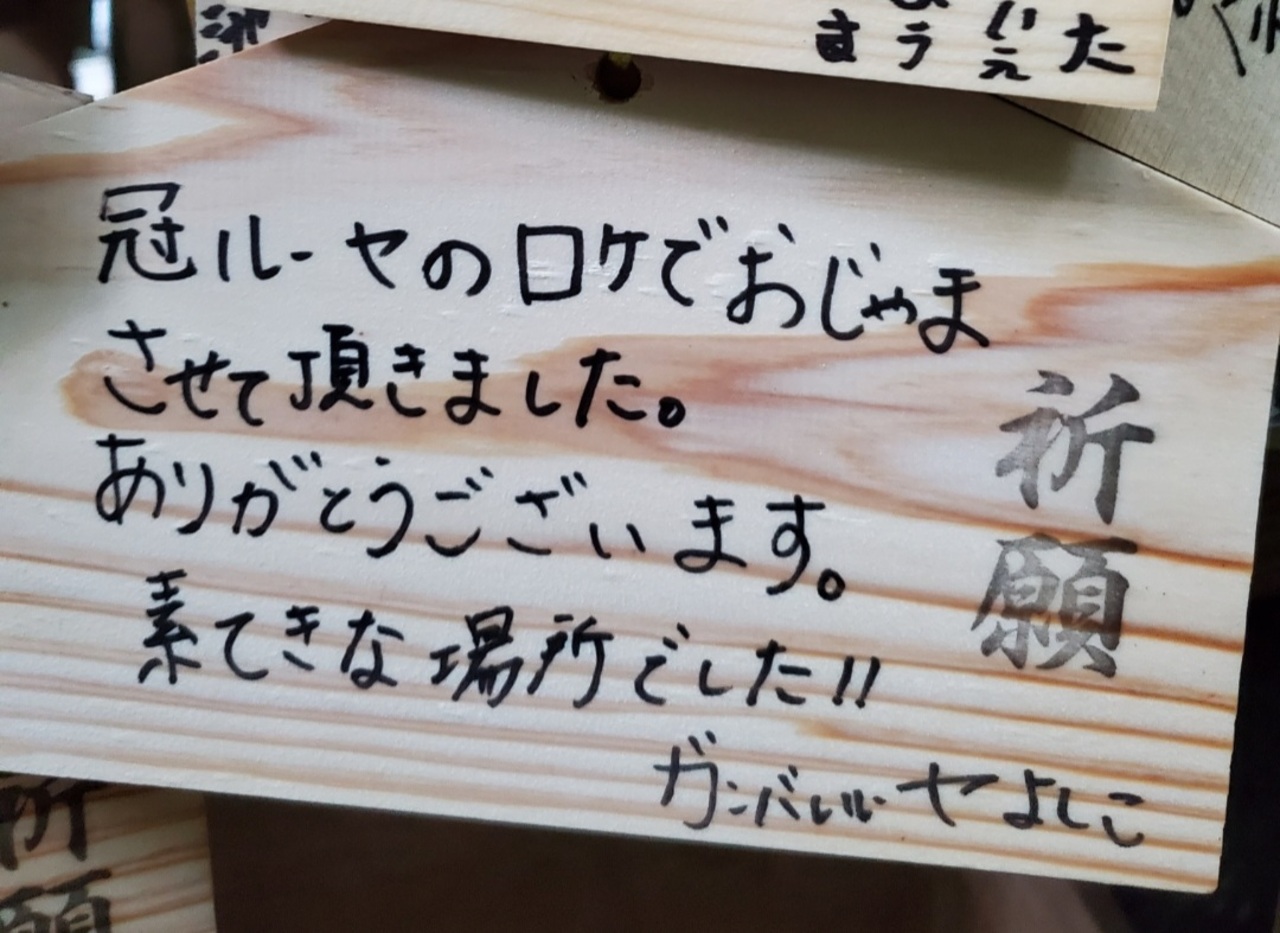 冠ルーヤのロケでおじゃま
させて頂きました。
ありがとうございます。
素てきな場所でした!!
ガンバレルーヤよしこ
祈願
祈願